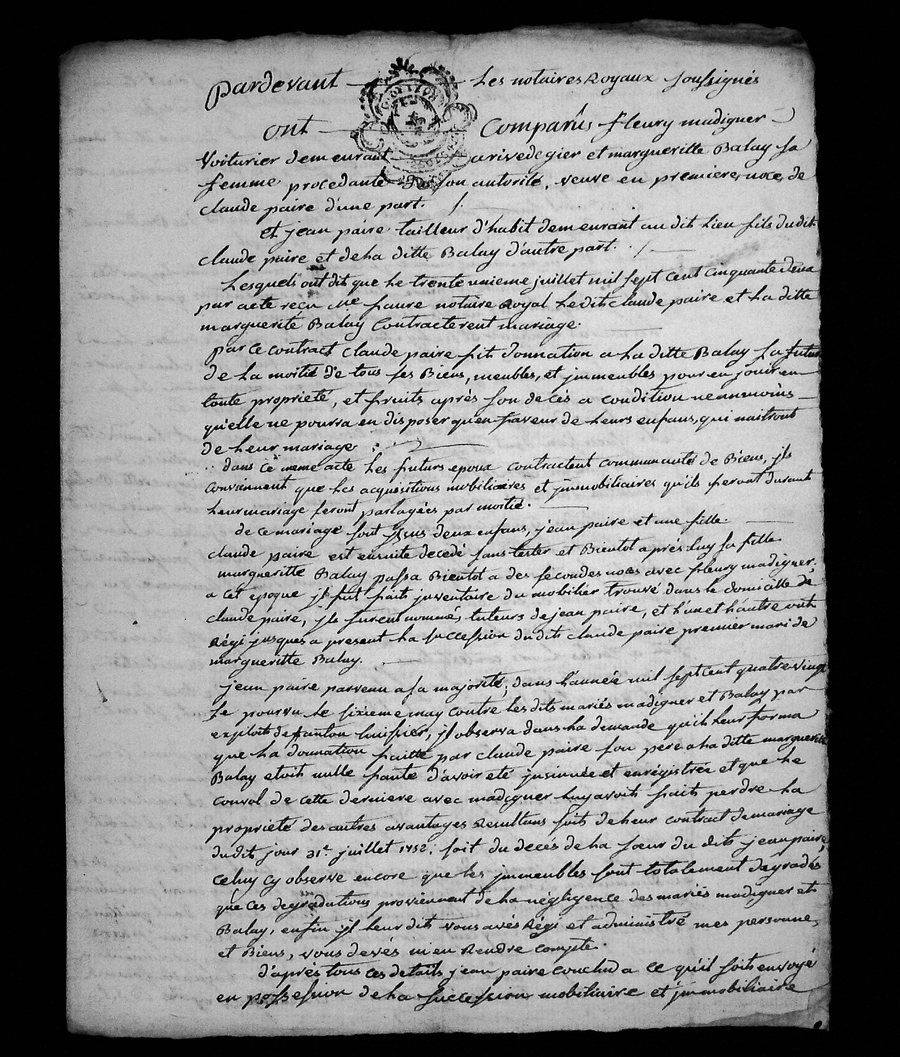 pardevant Les notaires Royaux soussignés
ont Comparûs fleury madignier
Voiturier demeurant a rivedegier et margueritte Balay sa
femme procedante de son autorité, veuve en premiere noce de
claude paire d'une part. /.
et jean paire tailleur d'habit demeurant au dit lieu fils du dit
claude paire et de la ditte Balay d'autre part. /
Lesquels ont dit que le trente unieme juillet mil sept cent cinquante deux
par acte recu Me faure notaire Royal le dit claude paire et la ditte
marguerite Balay Contracterent mariage.
par ce contract claude paire fit donnation a la ditte Balay sa future
de la moitié de tous ses Biens, meubles, et immeubles pour en jouir en
toute propriété, et fruits après son decès a condition neanmoins
qu'elle ne pourra en disposer qu'en faveur de leurs enfans, qui naitront
de leur mariage :
dans cè meme acte les futurs epoux contractent communauté de Biens, jls
conviennent que les acquisitions mobiliaires et jmmobiliaires qu'ils feront durant
leur mariage seront partagées par moitié.
de ce mariage sont jssus deux enfans, jean paire et une fille.
claude paire est ensuite decedé sans tester et Bientot après luy sa fille
margueritte Balay passa Bientot a des secondes noces avec fleury madignier,
a cet epoque jl fut fait jnventaire du mobilier trouvé dans le domicille de
claude paire, jls furent nommés tuteurs de jean paire, et l'un et l'autre ont
Régi jusques a present la succession du dit claude paire premier mari de
margueritte Balay.
jean paire parvenu a sa majorité, dans l'année mil sept cent quatre vingt
se pourvu le sixieme may contre les dits mariés madignier et Balay par
exploit de huissier, jl observa dans la demande qu'il leur forma
que la donnation faitte par claude paire son pere a la ditte marguerite
Balay etoit nulle faute d'avoir eté jnsinuée et enrégistrée et que le
convol de cette derniere avec madignier luy avoit fait perdre la
propriété des autres avantages Resultans soit de leur contract de mariage
du dit jour 31e juillet 1752; soit du decés de la sœur du dit jean paire,
celuy cy observe encore que les jmmeubles sont totalement degradés
que ces degradations proviennent de la négligence des mariés madignier et
Balay, enfin jl leur dit vous avés Régi et administré mes personne,
et Biens, vous devés m'en Rendre compte.
d'après tous ces details jean paire conclud a ce qu'il soit envoyé
en possession de la succession mobiliaire et jmmobiliaire